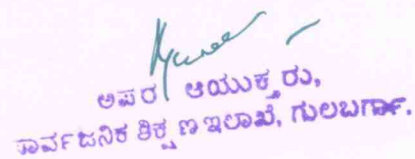 ಅಪರ ಆಯುಕ್ತರು,
ಸಾರ್ವಜನಿಕ ಶಿಕ್ಷಣ ಇಲಾಖೆ, ಗುಲಬರ್ಗಾ.